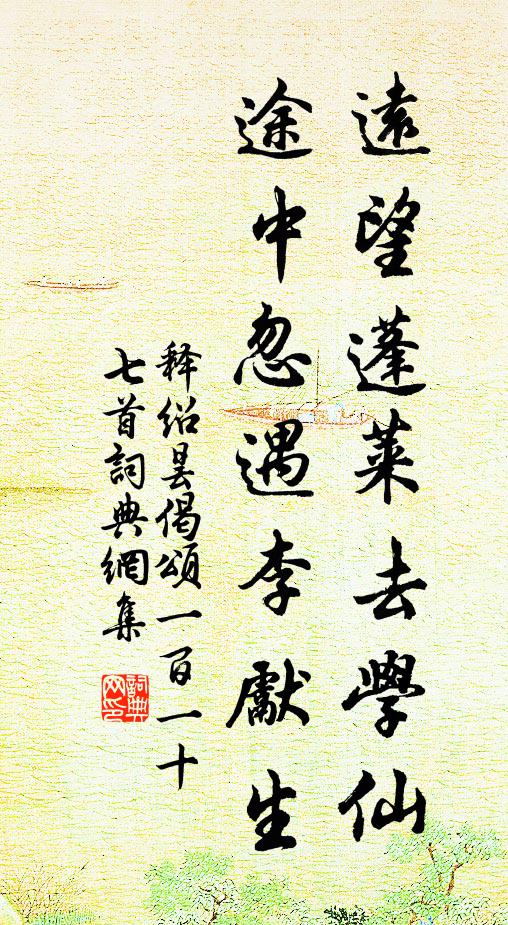 遠望蓬萊去學仙
途中忽遇李獻生
釋紹曇偈頌一百一十
七首詞典網集
詞典
网印